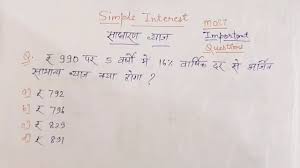 Simple Interest
MOST
साधारण ब्याज
Important
Questions
Q. ₹ 990 पर 5 वर्षों में 16% वार्षिक दर से अर्जित
सामान्य ब्याज क्या होगा ?
a) ₹ 792
b) ₹ 796
c) ₹ 829
d) ₹ 891